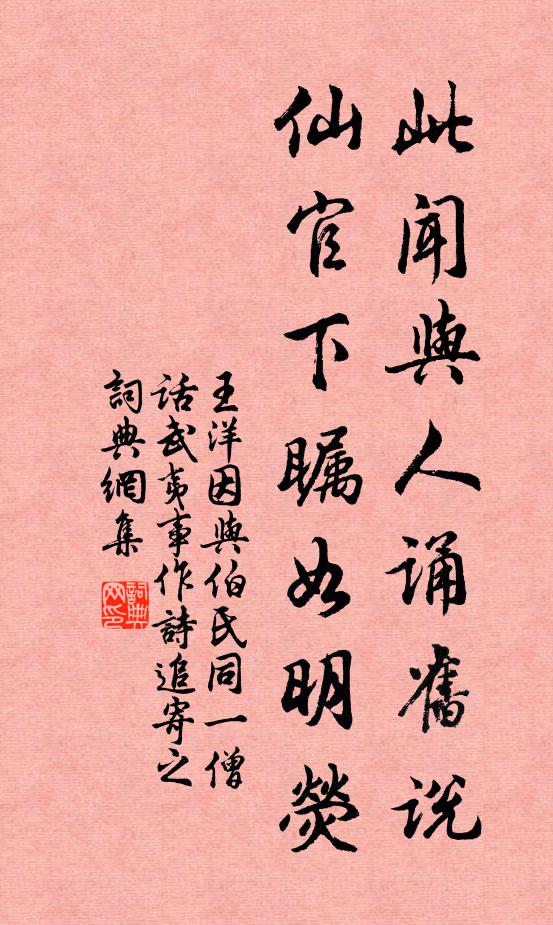 此闻與人诵舊说
仙官下瞩如明熒
王洋因與伯氏同一僧
话武夷事作詩追寄之
詞典網集
詞典网印